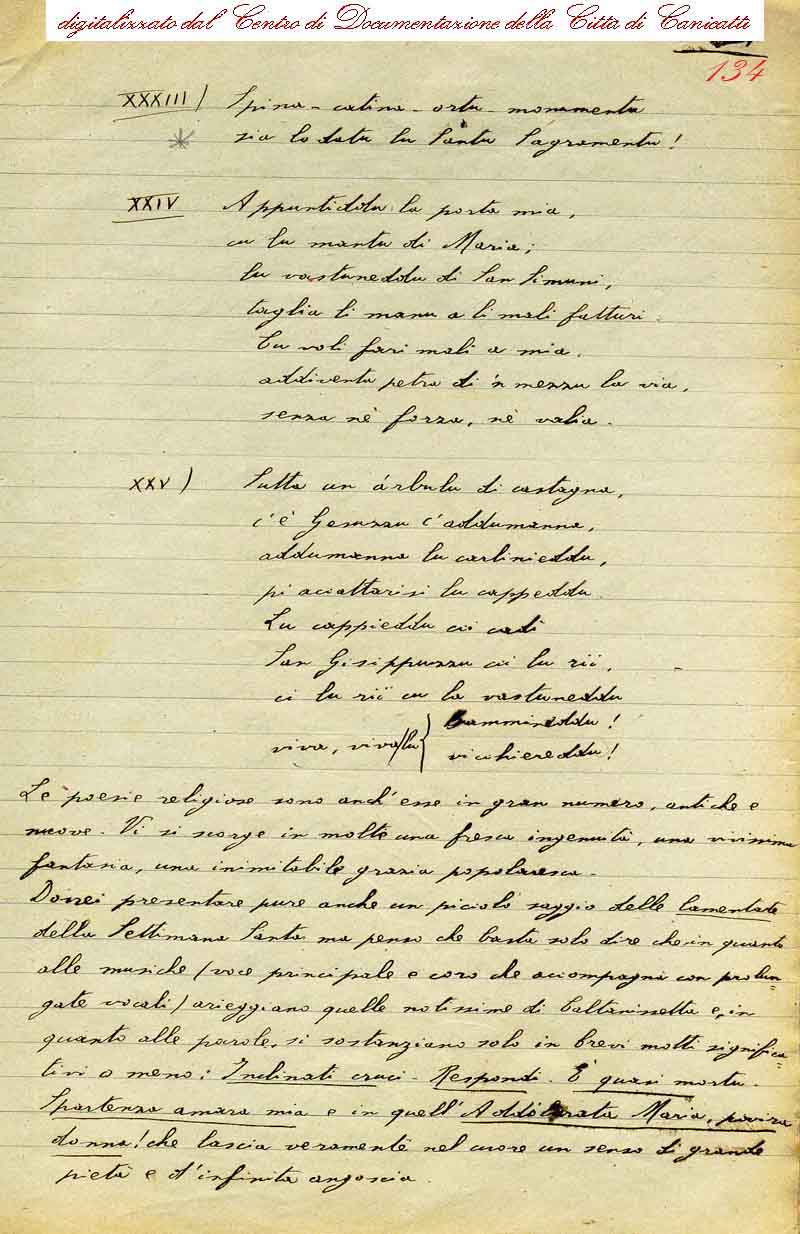 digitalizzato dal Centro di Documentazione della Città di Canicattì
134
XXXIII) Spina - catina - ortu - monumentu
sia lodatu lu Santu Sagramentu!
XXIV Appuntiddu la porta mia,
cu lu mantu di Maria;
lu vastuneddu di San Simuni,
taglia li manu a li mali fatturi.
Cu voli fari mali a mia,
addiventa petra di 'n mezzu la via,
senza nè forza, nè valia.
XXV) Sutta un árbulu di castagna,
c'è Gesuzzu c'addumanna,
addumanna lu carlinieddu,
pi accattarisi lu cappeddu.
Lu cappieddu cci cadi
San Gisippuzzu cci lu riì,
ci lu riì cu la vastuneddu
viva, viva lu { Bammineddu!
vicchiereddu!
Le poesie religiose sono anch'esse in gran numero, antiche e
nuove. Vi si scorge in molte una fresca ingenuità, una vivissima
fantasia, una inimitabile grazia popolaresca.
Dovrei presentare pure anche un piccolo saggio delle lamentate
della Settimana Santa ma penso che basta solo dire che in quanto
alle musiche (voce principale e coro che accompagna con prolun-
gate vocali) arieggiano quelle notissime di Caltanissetta e, in
quanto alle parole, si sostanziano solo in brevi motti significa-
tivi o meno: Inclinati cruci - Respondi. È quasi mortu.
Spartenza amara mia e in quell'Addolurata Maria, povira
donna! che lascia veramente nel cuore un senso di grande
pietà e d'infinita angoscia.